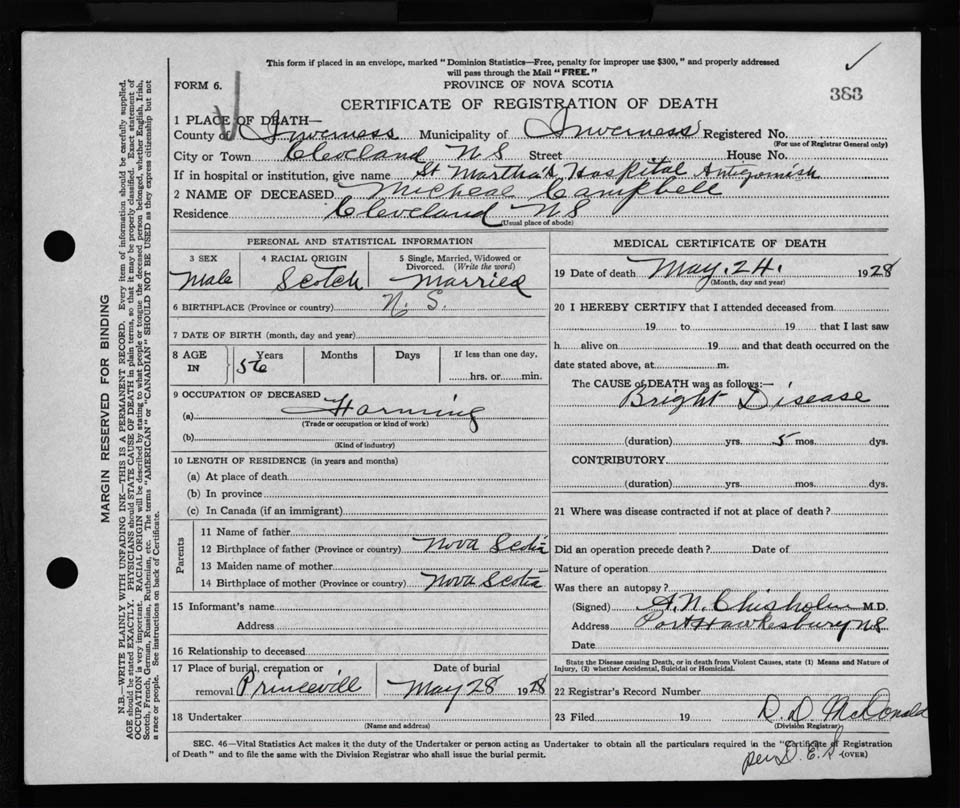 This form if placed in an envelope, marked "Dominion Statistics—Free, penalty for improper use $300," and properly addressed
will pass through the Mail "FREE."
FORM 6.
PROVINCE OF NOVA SCOTIA
383
CERTIFICATE OF REGISTRATION OF DEATH
1 PLACE OF DEATH—
County of Inverness Municipality of Inverness Registered No.
(For use of Registrar General only)
City or Town Cleveland N S Street House No.
If in hospital or institution, give name St Martha's Hospital Antigonish
2 NAME OF DECEASED Micheal Campbell
Residence Cleveland N S
(Usual place of abode)
PERSONAL AND STATISTICAL INFORMATION
3 SEX 4 RACIAL ORIGIN 5 Single, Married, Widowed or
Divorced. (Write the word)
Male Scotch Married
6 BIRTHPLACE (Province or country) N. S.
7 DATE OF BIRTH (month, day and year)
8 AGE IN Years Months Days If less than one day,
56 hrs. or min.
9 OCCUPATION OF DECEASED
(a) Farming
(Trade or occupation or kind of work)
(b)
(Kind of industry)
10 LENGTH OF RESIDENCE (in years and months)
(a) At place of death
(b) In province
(c) In Canada (if an immigrant)
Parents
11 Name of father
12 Birthplace of father (Province or country) Nova Scotia
13 Maiden name of mother
14 Birthplace of mother (Province or country) Nova Scotia
15 Informant's name
Address
16 Relationship to deceased
17 Place of burial, cremation or Date of burial
removal Princeville May 28 1928
18 Undertaker
(Name and address)
MEDICAL CERTIFICATE OF DEATH
19 Date of death May. 24. 1928
(Month, day and year)
20 I HEREBY CERTIFY that I attended deceased from
19 to 19 that I last saw
h alive on 19 and that death occurred on the
date stated above, at m.
The CAUSE of DEATH was as follows:—
Bright Disease
(duration) yrs. 5 mos. dys.
CONTRIBUTORY
(duration) yrs. mos. dys.
21 Where was disease contracted if not at place of death?
Did an operation precede death? Date of
Nature of operation
Was there an autopsy?
(Signed) A. N. Chisholm M.D.
Address Port Hawkesbury N S
Date
State the Disease causing Death, or in death from Violent Causes, state (1) Means and Nature of
Injury, (2) whether Accidental, Suicidal or Homicidal.
22 Registrar's Record Number
23 Filed 19 D. D. McDonald
(Division Registrar)
per D. E. S.
SEC. 46—Vital Statistics Act makes it the duty of the Undertaker or person acting as Undertaker to obtain all the particulars required in the "Certificate of Registration
of Death" and to file the same with the Division Registrar who shall issue the burial permit.
(OVER)
MARGIN RESERVED FOR BINDING
N.B.—WRITE PLAINLY WITH UNFADING INK—THIS IS A PERMANENT RECORD. Every item of information should be carefully supplied.
AGE should be stated EXACTLY. PHYSICIANS should STATE CAUSE OF DEATH in plain terms, so that it may be properly classified. Exact statement of
OCCUPATION is very important. RACIAL ORIGIN will be described by stating to what people or tongue the deceased person belonged, whether English, Irish,
Scotch, French, German, Russian, Ruthenian, etc. The terms "AMERICAN" or "CANADIAN" SHOULD NOT BE USED as they express citizenship but not
a race or people. See instructions on back of Certificate.